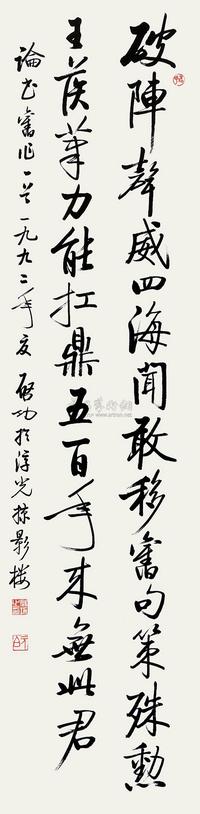 破陣聲威四海聞敢移舊句策殊勳
王侯筆力能扛鼎五百年來無此君
論書舊作一首一九九二年夏啟功於浮光掠影樓